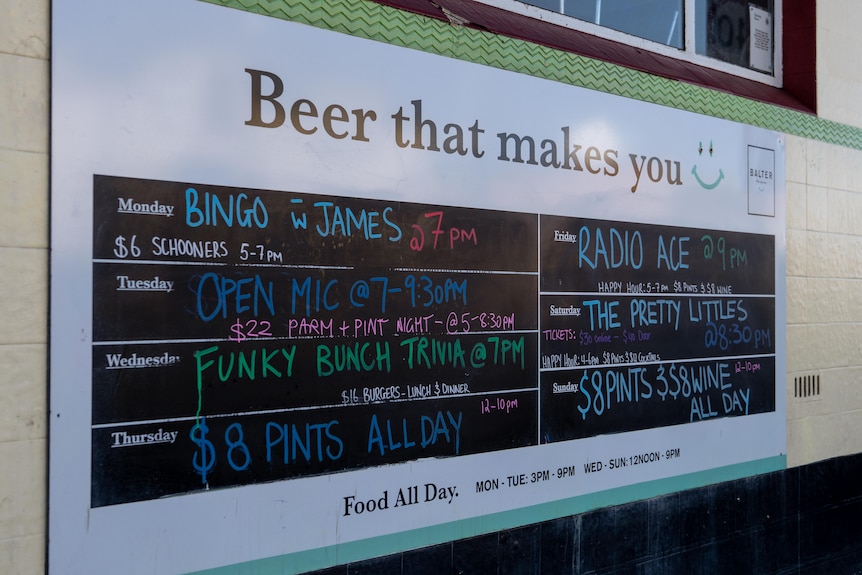 Beer that makes you
BALTER
Monday BINGO w̄ JAMES @7PM
$6 SCHOONERS 5-7PM
Tuesday OPEN MIC @ 7-9:30PM
$22 PARM + PINT NIGHT - @5-8:30PM
Wednesday FUNKY BUNCH TRIVIA @7PM
$16 BURGERS - LUNCH & DINNER
Thursday $8 PINTS ALL DAY 12-10PM
Friday RADIO ACE @9PM
HAPPY HOUR: 5-7PM $8 PINTS & $8 WINE
Saturday THE PRETTY LITTLES
TICKETS: $30 online - $40 Door @8:30PM
HAPPY HOUR: 4-6PM $8 PINTS & $12 COCKTAILS
Sunday $8 PINTS & $8 WINE 12-10PM
ALL DAY
Food All Day. MON - TUE: 3PM - 9PM WED - SUN: 12NOON - 9PM